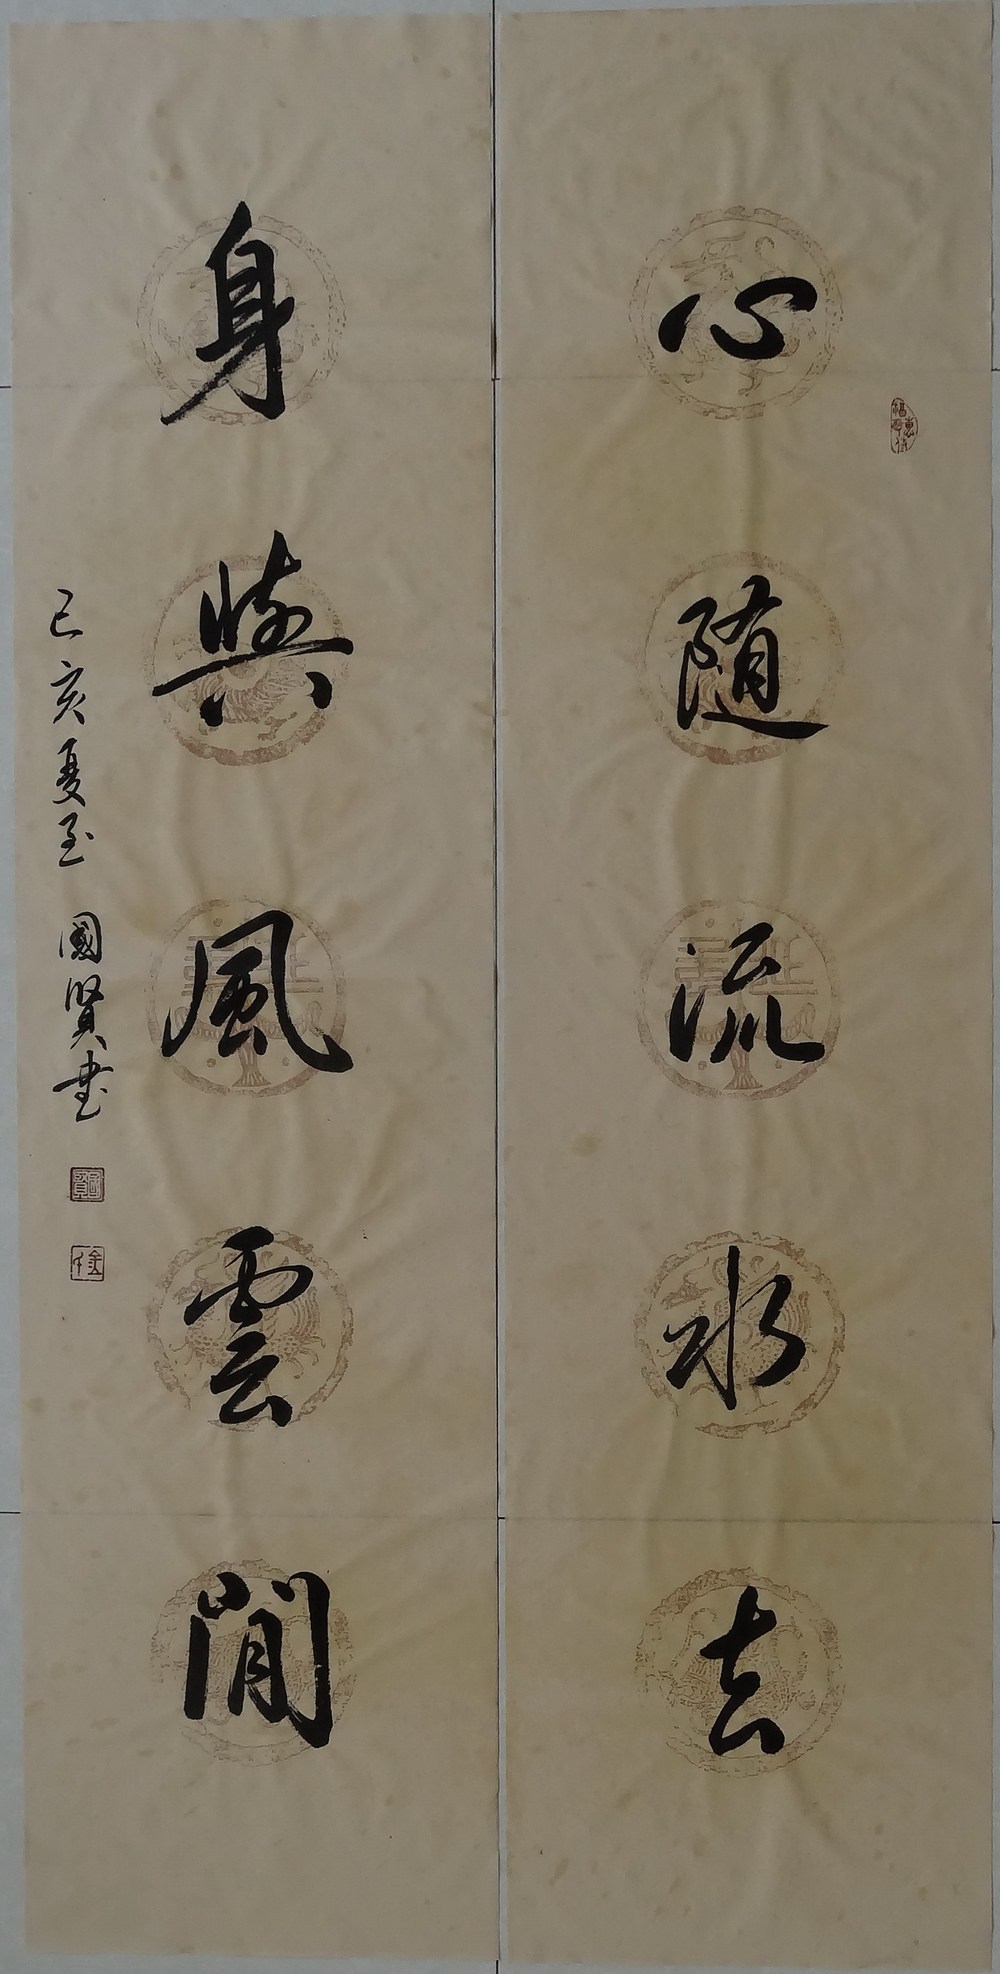 心随流水去
身與風雲閒
己亥夏至 國賢書